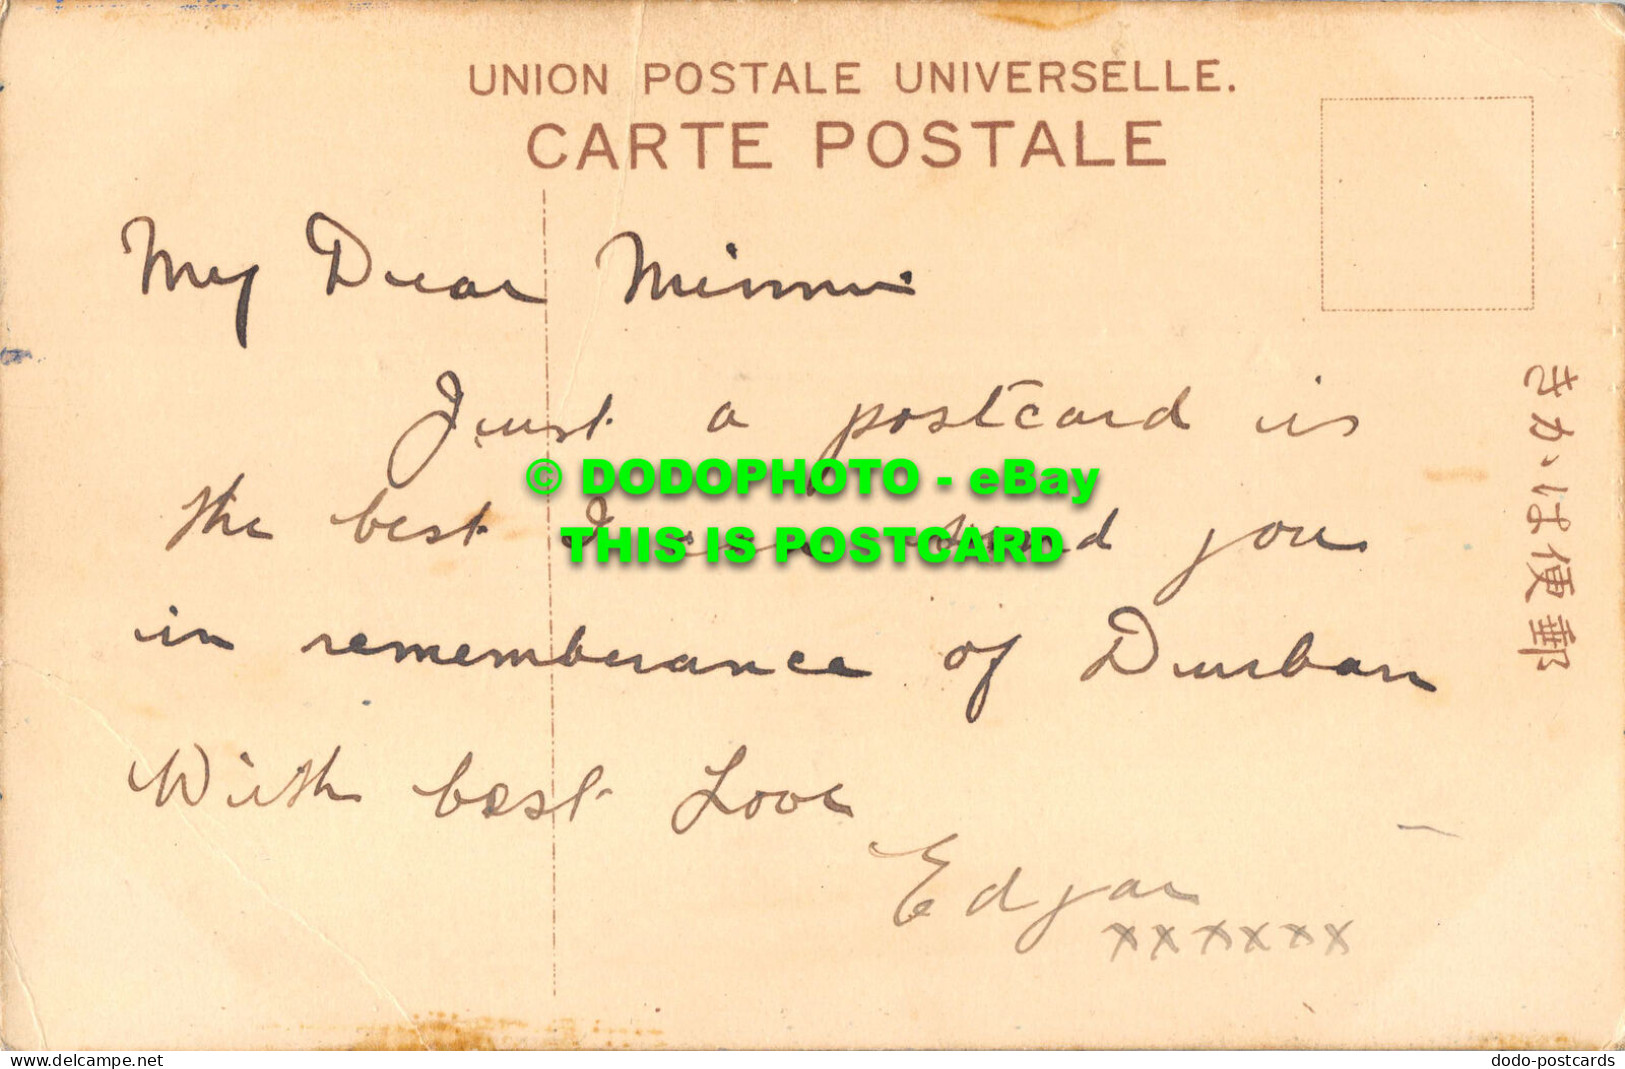 UNION POSTALE UNIVERSELLE.
CARTE POSTALE
My Dear Minnie
Just a postcard is
© DODOPHOTO - eBay
the best I can send you
THIS IS POSTCARD
in rememberance of Durban
With best Love
Edgar
xxxxxx
きかは便郵
www.delcampe.net
dodo-postcards